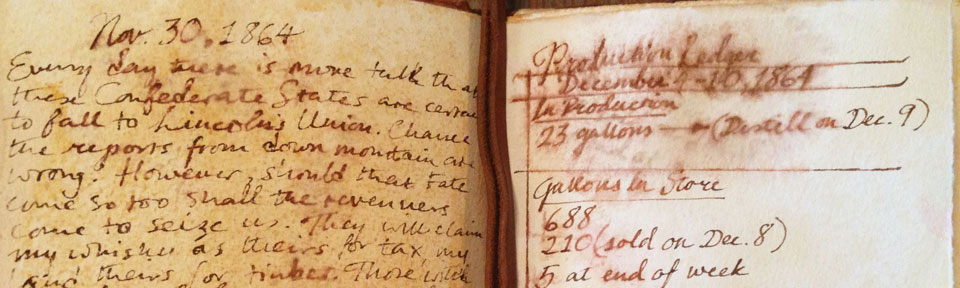 Nov. 30, 1864
Every day there is more talk that
these Confederate States are certain
to fall to Lincoln's Union. Chance
the reports from down mountain are
wrong? However, should that fate
come so too shall the revenuers
come to seize us. They will claim
my whiskey as theirs for tax, my
land theirs for timber. Those
Production Ledger
December 4-10, 1864
In Production
23 gallons → (Distill on Dec. 9)
Gallons In Store
688
210 (sold on Dec. 8)
5 at end of week